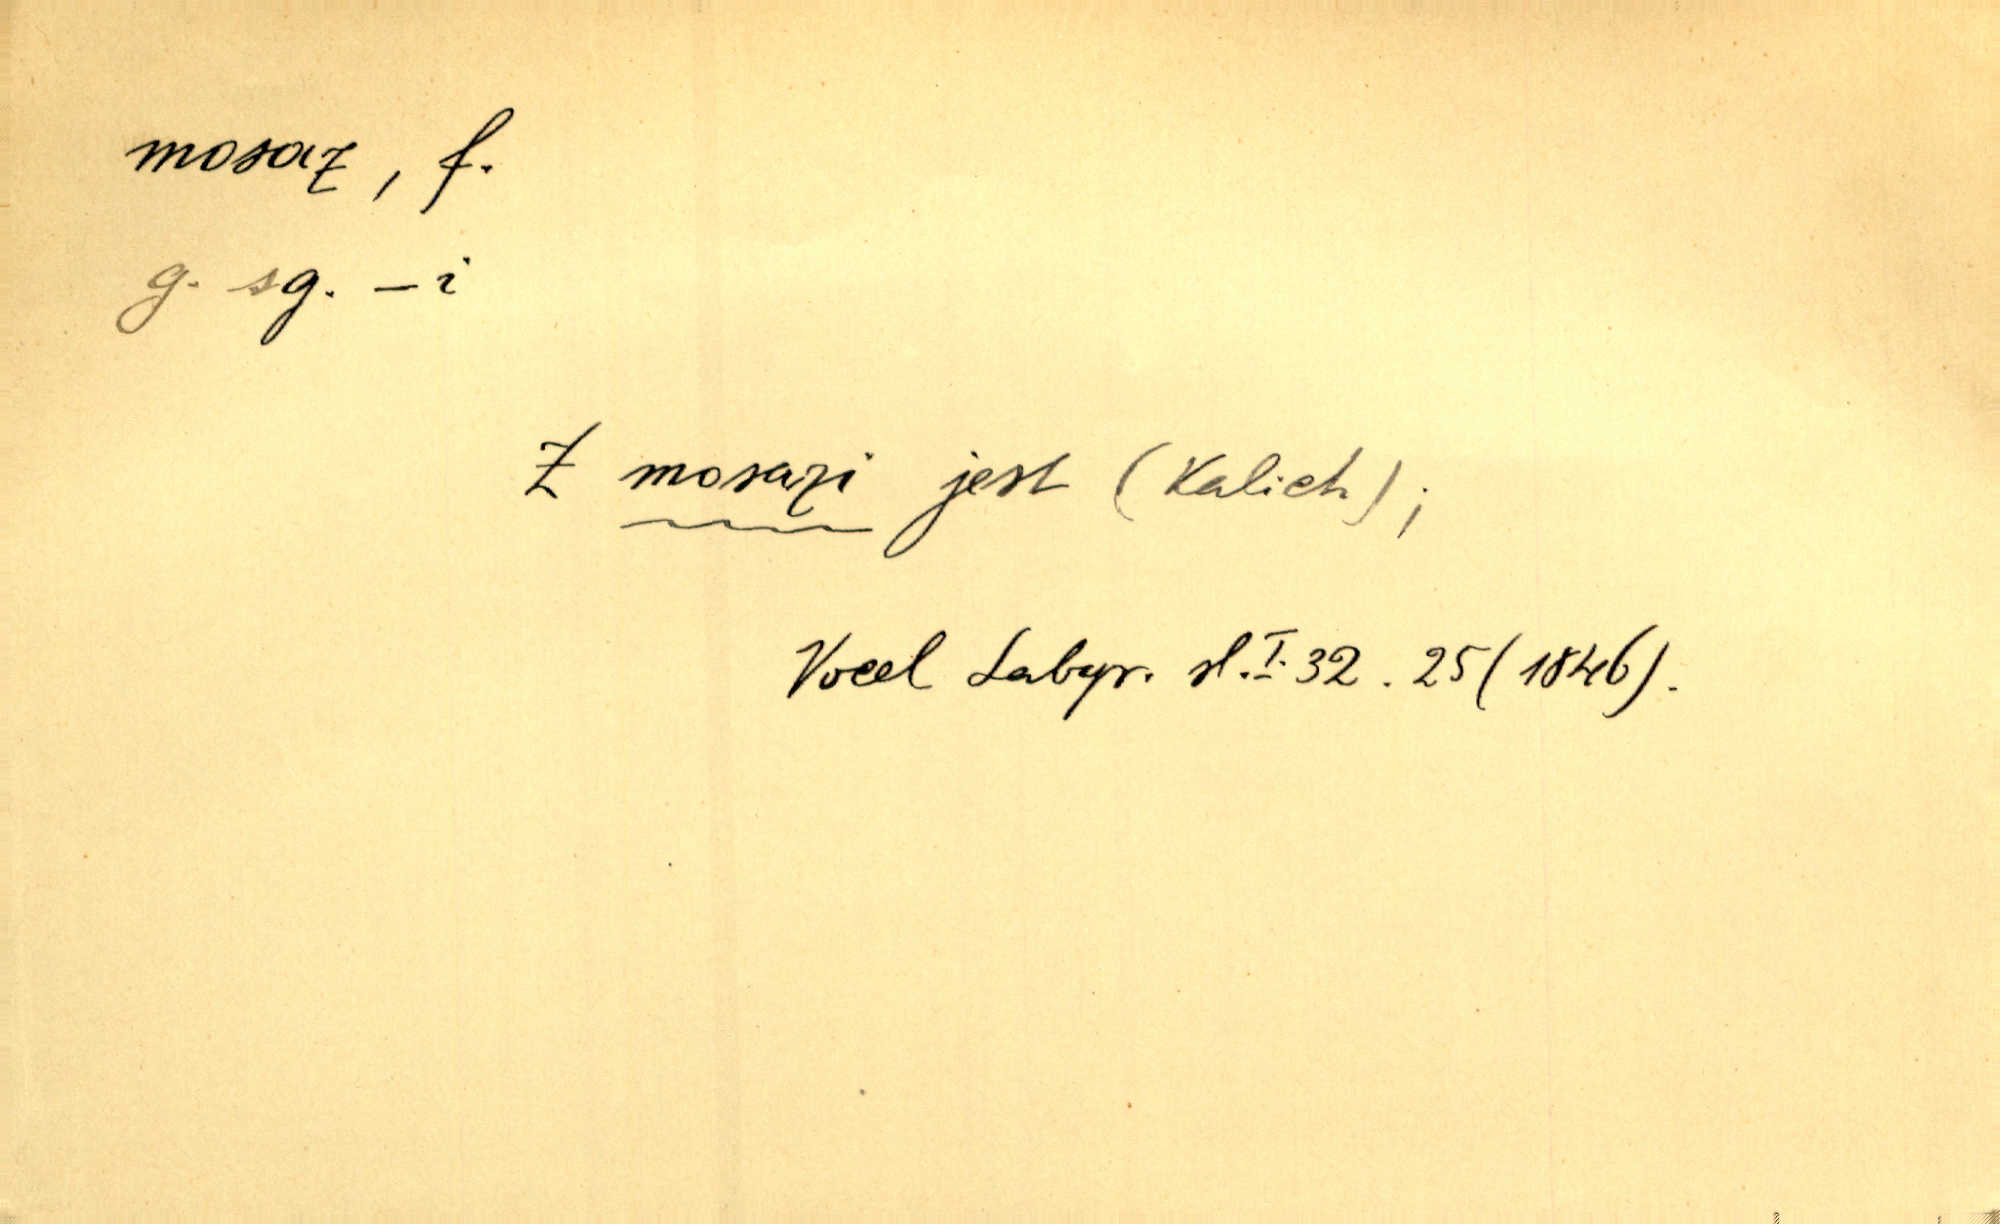 mosaz, f.
g. sg. – i
Z mosazi jest (Kalich);
Vocel Labyr. sl. I. 32. 25 (1846).